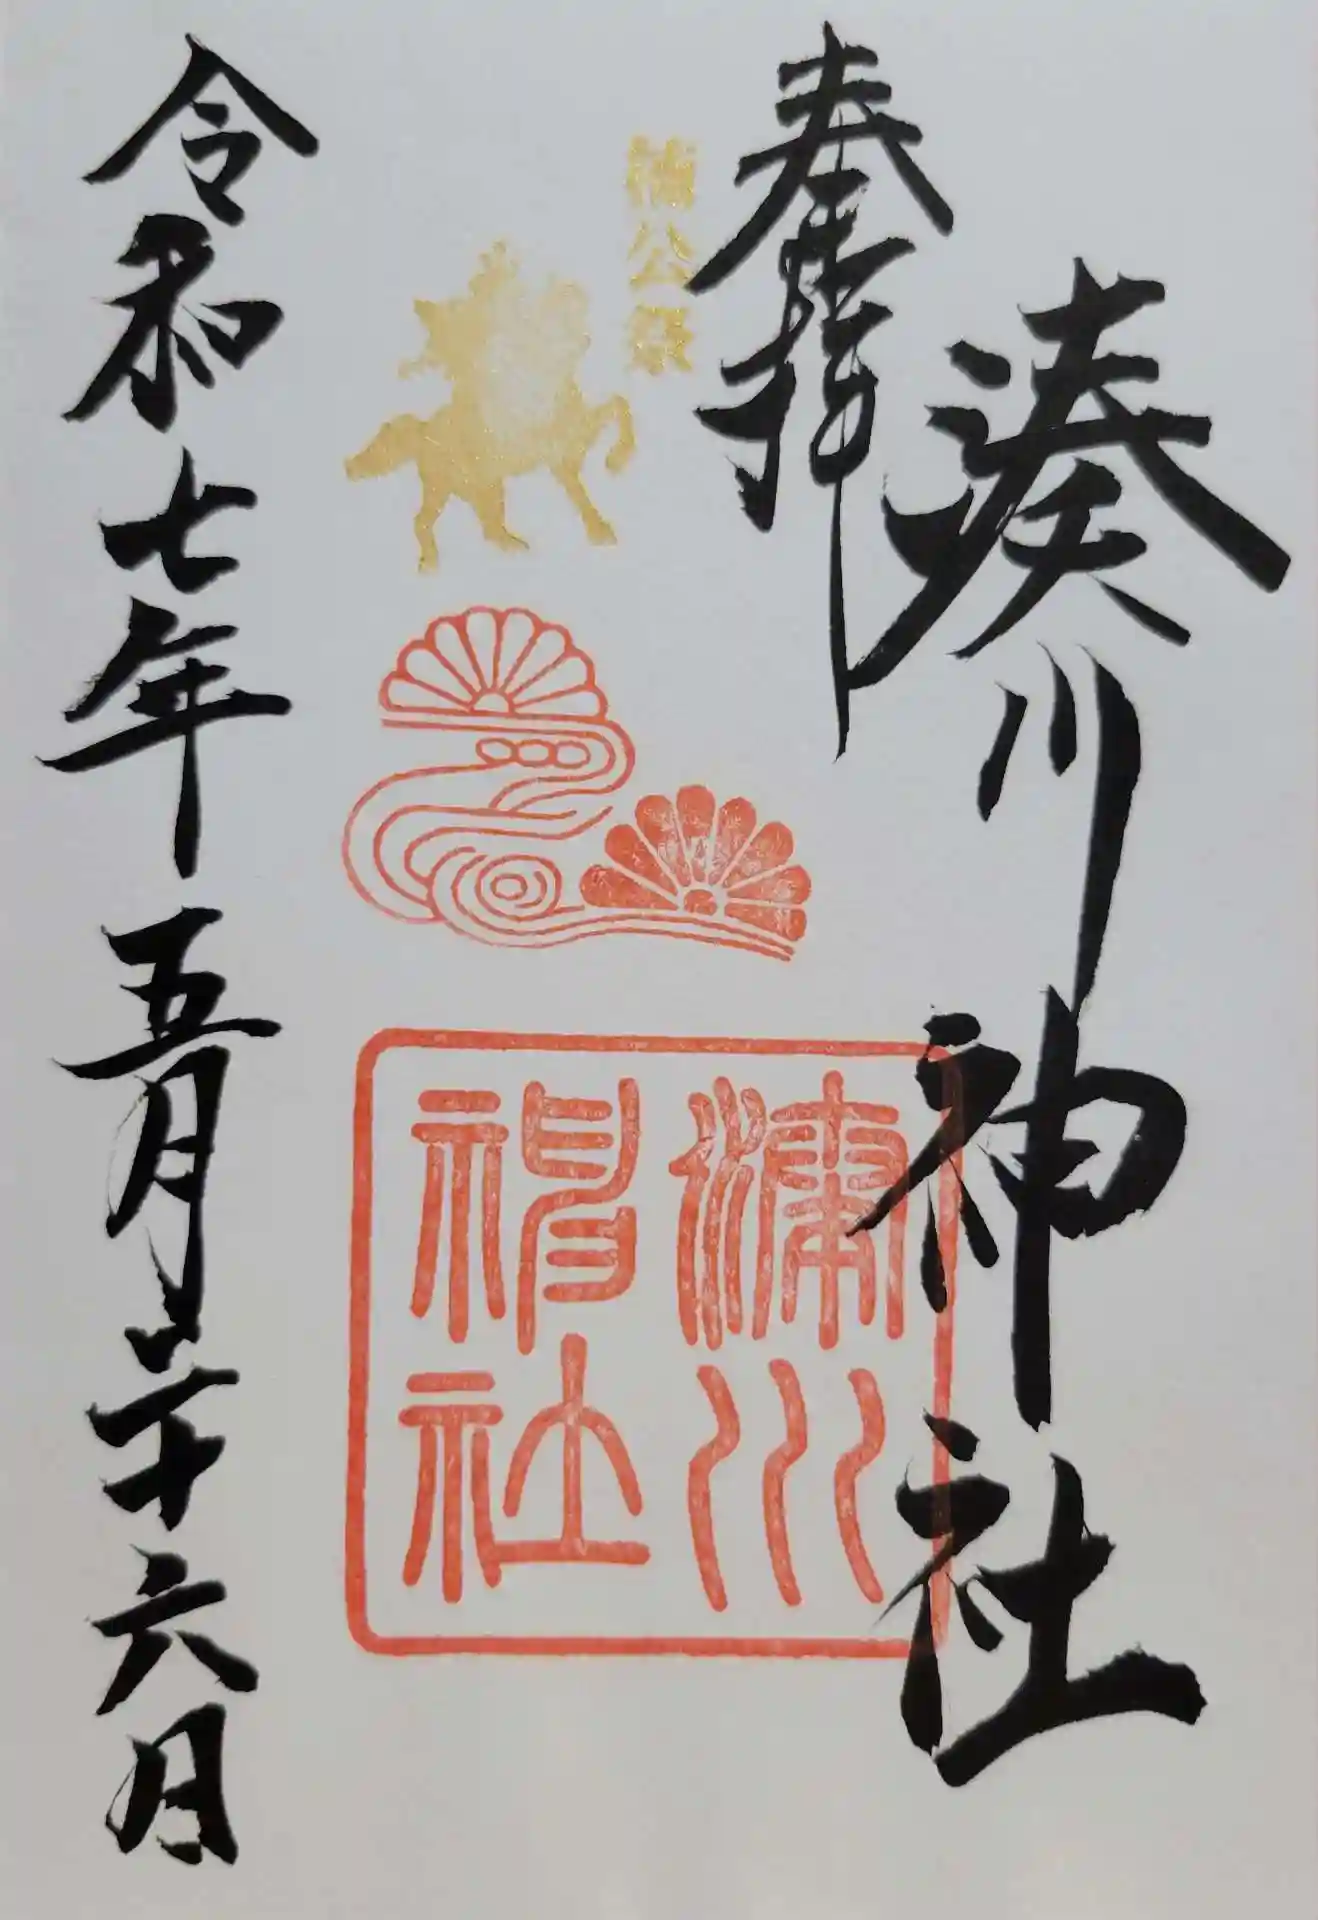 奉拝
湊川神社
楠公祭
湊川
神社
令和七年五月二十六日